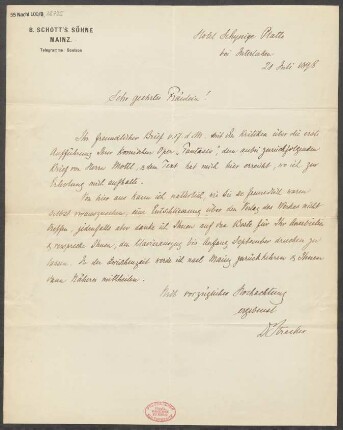 55 Nachl 100/B,
B. SCHOTT'S SÖHNE
MAINZ.
Hotel Schynige Platte
bei Interlaken
21 Juli 1898
Sehr geehrtes Fräulein!
Ihr freundlicher Brief v. 17 d. Mts. mit den Kritiken über die erste
Aufführung Ihrer komischen Oper „Fantasio", den anbei zurückfolgenden
Brief von Herrn Mottl, & dem Text hat mich hier erreicht, wo ich zur
Erholung mich aufhalte.
Von hier aus kann ich natürlich, wie Sie so freundlich waren
selbst vorauszusehen, eine Entschliessung über den Verlag des Werkes nicht
treffen, jedenfalls aber danke ich Ihnen auf das Beste für Ihr Anerbieten
& verspreche Ihnen, den Clavierauszug bis Anfang September
lassen. In der Zwischenzeit werde ich nach Mainz zurückkehren & Ihnen
dann Näheres mittheilen.
Mit vorzüglicher Hochachtung
ergebenst
Dr Strecker